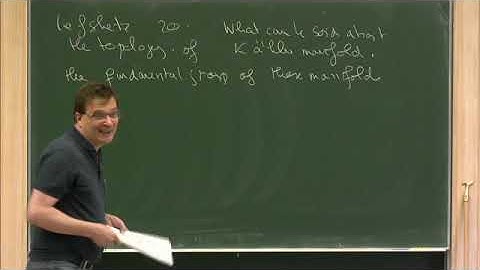 Lefshetz 20. What can be said about
the topology of Kähler manifold.
the fundamental group of these manifold